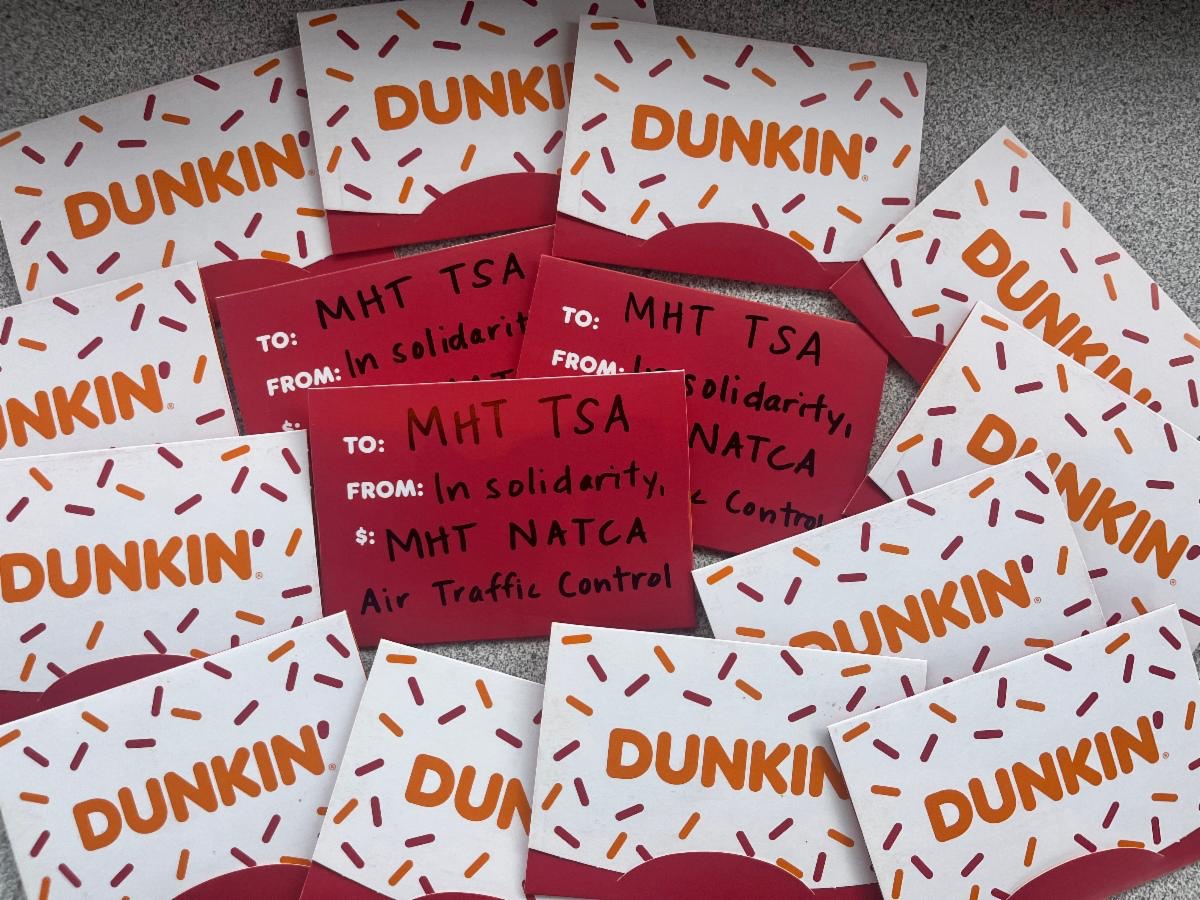 DUNKIN'
DUNKIN'
DUNKIN'
DUNKIN'
TO: MHT TSA
FROM: In solidarit
$:
TO: MHT TSA
FROM: In solidarity,
NATCA
c Control
UNKIN'
TO: MHT TSA
FROM: In solidarity,
$: MHT NATCA
Air Traffic Control
DUNKIN'
DUNKIN'
DUNKIN'
DUNKIN'
DUN
DUNKIN
DUNKIN'